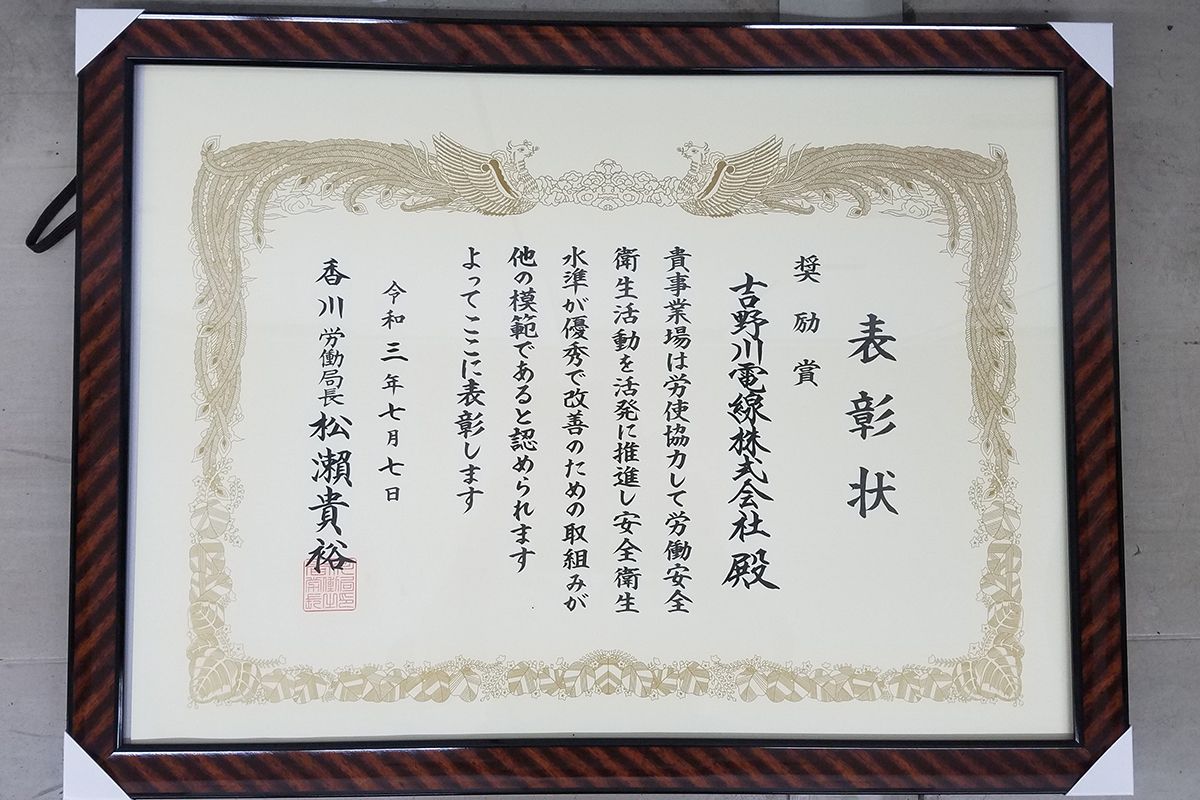 表彰状
奨励賞
吉野川電線株式会社 殿
貴事業場は労使協力して労働安全
衛生活動を活発に推進し安全衛生
水準が優秀で改善のための取組みが
他の模範であると認められます
よってここに表彰します
令和三年七月七日
香川労働局長 松瀬貴裕